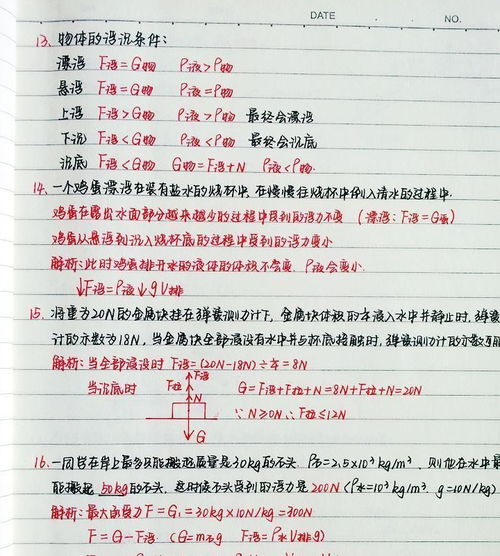 DATE NO.
13. 物体的浮沉条件:
漂浮 F浮=G物 ρ液>ρ物
悬浮 F浮=G物 ρ液=ρ物
上浮 F浮>G物 ρ液>ρ物 最终会漂浮
下沉 F浮<G物 ρ液<ρ物 最终会沉底
沉底 F浮<G物 G物=F浮+N ρ液<ρ物.
14. 一个鸡蛋漂浮在装有盐水的烧杯中, 在慢慢往烧杯中倒入清水的过程中.
鸡蛋在露出水面部分越来越少的过程中受到的浮力不变 (漂浮: F浮=G蛋)
鸡蛋从悬浮到沉入烧杯底的过程中受到的浮力变小
解析: 此时鸡蛋排开水的液体的体积不会变, ρ液会变小.
↓F浮=ρ液↓gV排
15. 将重为20N的金属块挂在弹簧测力计下, 金属块体积的 浸入水中并静止时, 弹簧
计的示数为18N, 当金属块全部浸没在水中并与杯底接触时, 弹簧测力计的示数可能
解析: 当全部浸没时 F浮=(20N-18N)÷ =8N
当沉底时 F拉 F浮 G=F浮+F拉+N=8N+F拉+N=20N
N ∵N≥0N ∴F拉≤12N
G
16. 一同学在岸上最多只能搬起质量是30kg的石头. ρ石=2.5×10³kg/m³, 则他在水中最
能搬起 50kg的石头, 这时候石头受到的浮力是 200N (ρ水=10³kg/m³. g=10N/kg)
解析: 最大的支力 F=G₁=30kg×10N/kg=300N
F=G-F浮 (G=m石g F浮=ρ水V排g)